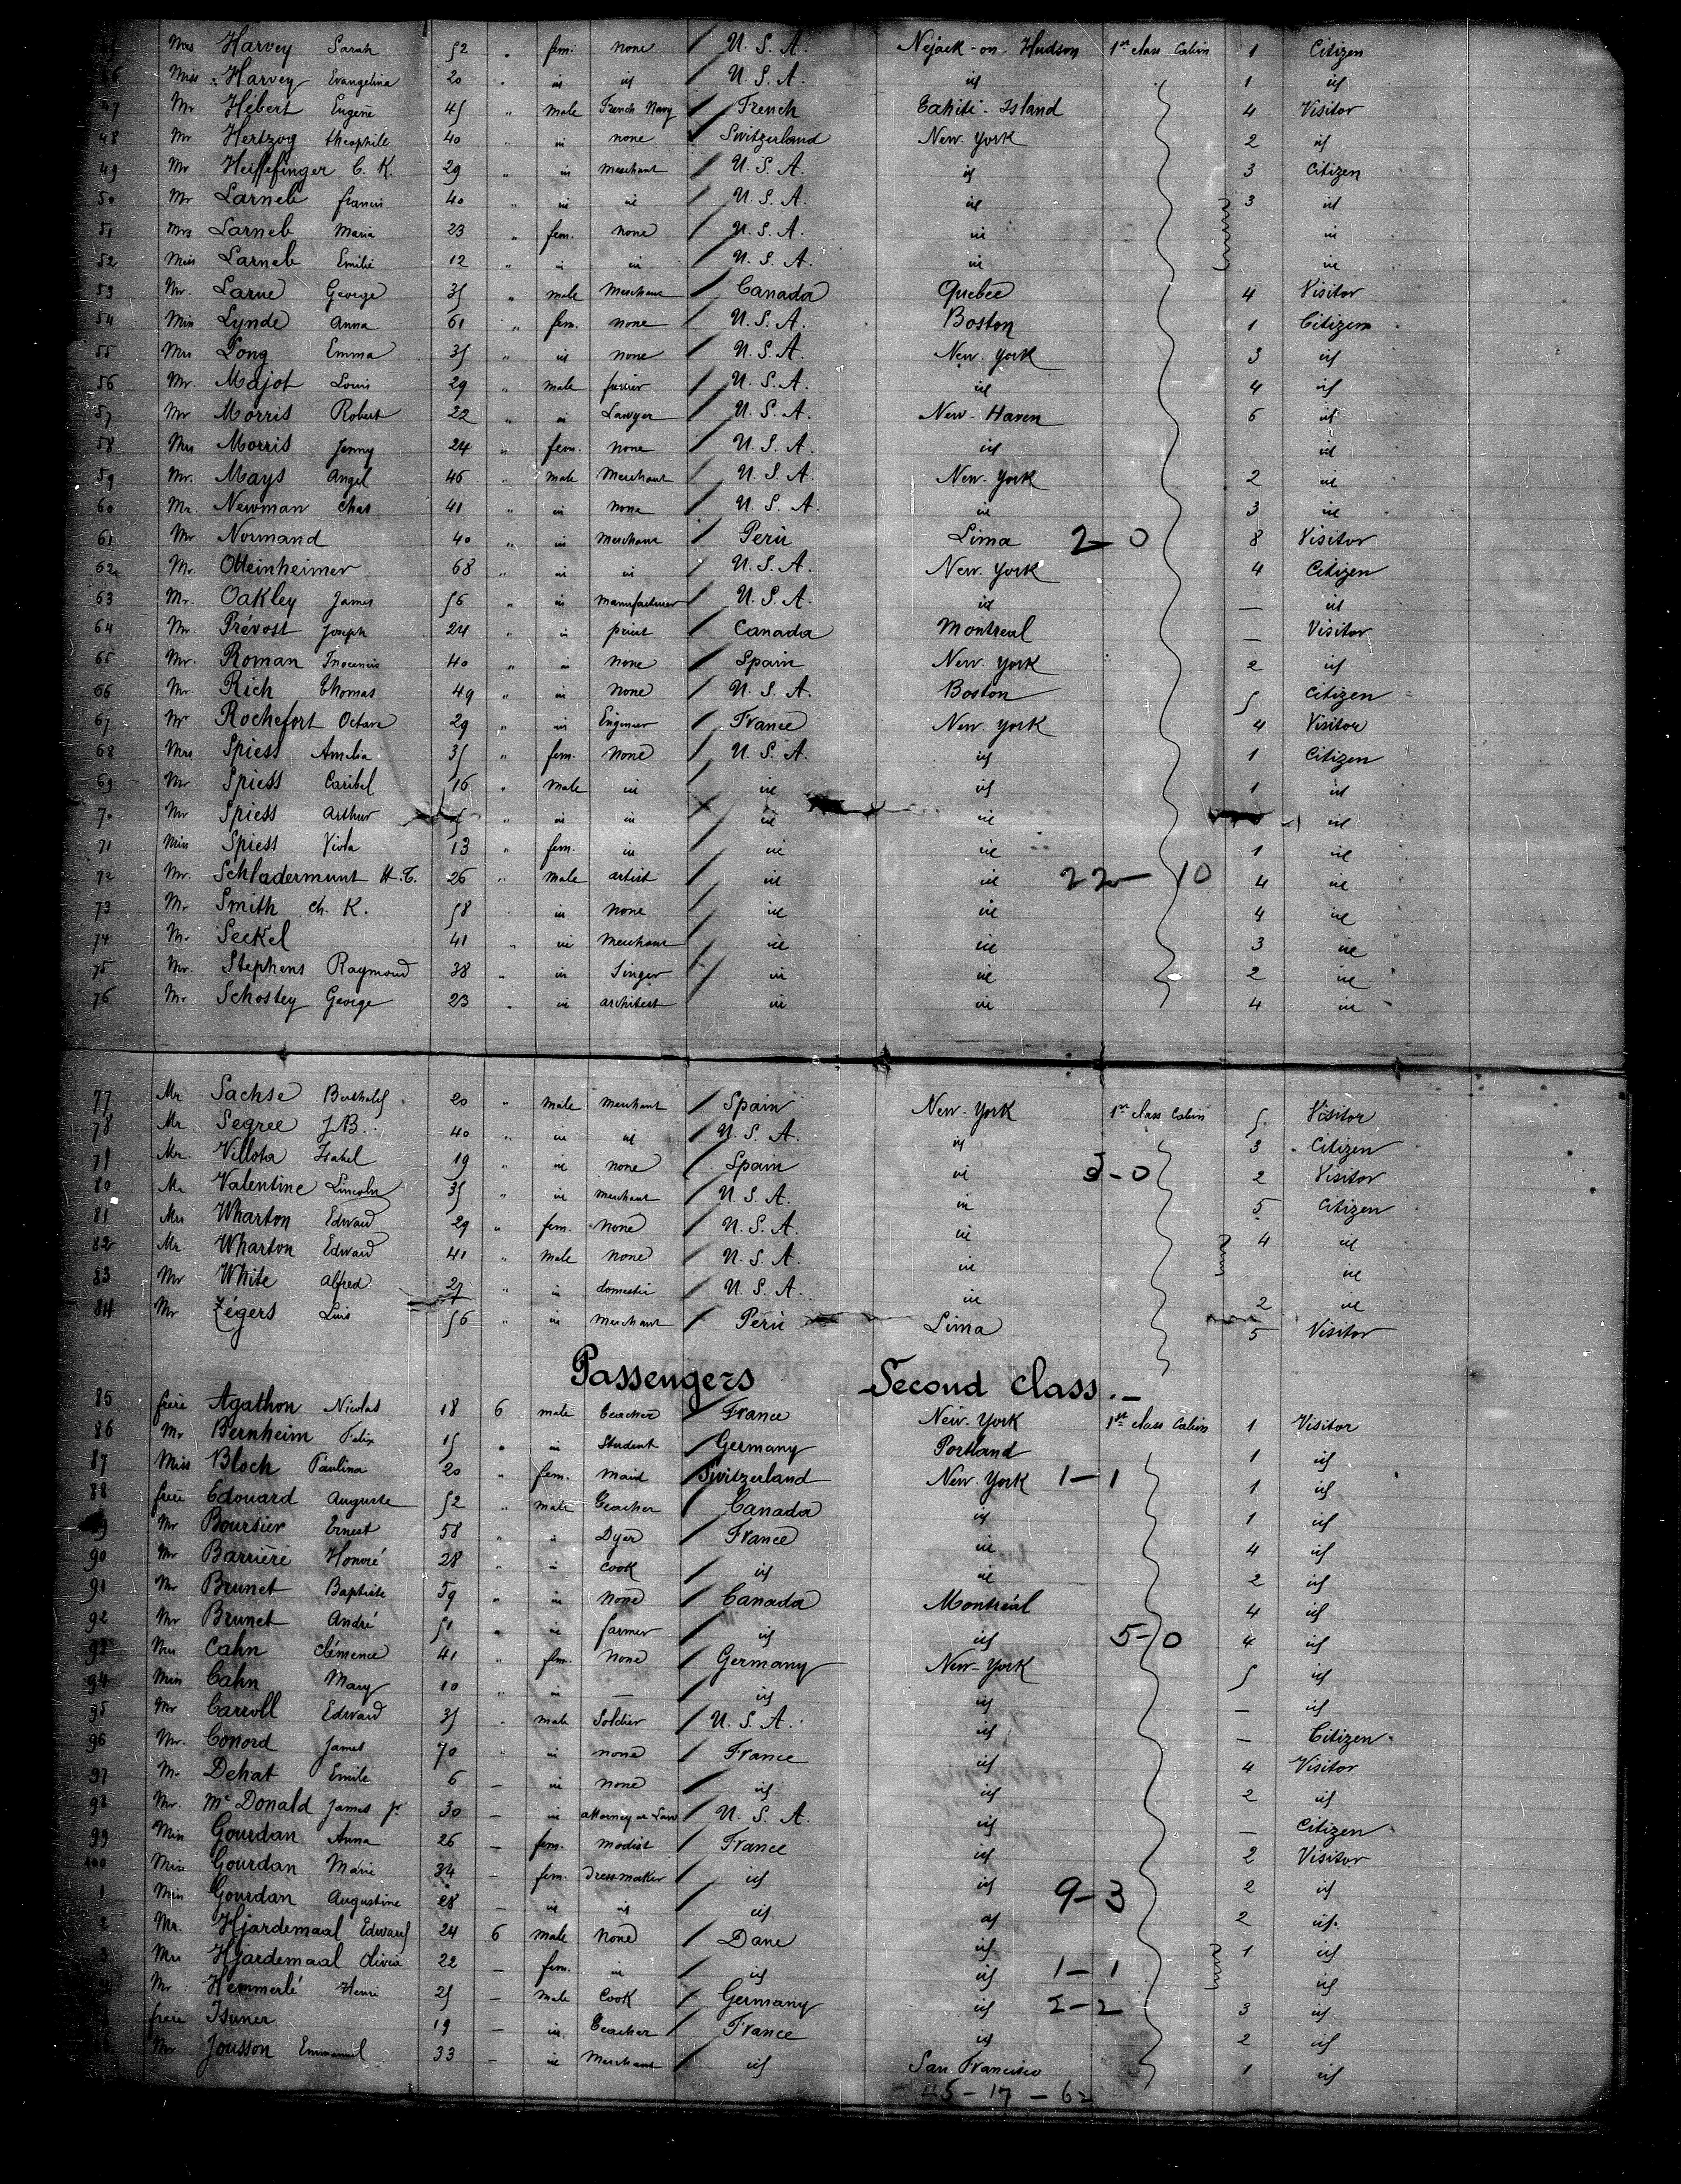 Mrs Harvey Sarah 52 " fem. none / U. S. A. Nejack-on-Hudson 1st class Cabin 1 Citizen
46 Miss Harvey Evangelina 20 " id id / U. S. A. id 1 id
47 Mr Hébert Eugène 45 " male French Navy / French Tahiti-Island 4 Visitor
48 Mr Hertzog théophile 40 " id none / Switzerland New-York 2 id
49 Mr Heiffefinger C. K. 29 " id merchant / U. S. A. id 3 Citizen
50 Mr Larneb francis 40 " id id / U. S. A. id 3 id
51 Mrs Larneb Maria 23 " fem. none / U. S. A. id id
52 Miss Larneb Emilie 12 " id id / U. S. A. id id
53 Mr. Larue George 35 " male Merchant / Canada Quebec 4 Visitor
54 Miss Lynde Anna 61 " fem. none / U. S. A. Boston 1 Citizen
55 Mrs Long Emma 35 " id none / U. S. A. New-York 3 id
56 Mr. Majot Louis 29 " male furrier / U. S. A. id 4 id
57 Mr Morris Robert 22 " id Lawyer / U. S. A. New-Haven 6 id
58 Mrs Morris Jenny 24 " fem. none / U. S. A. id id
59 Mr. Mays Angel 46 " male Merchant / U. S. A. New-York 2 id
60 Mr. Newman Chas 41 " id none / U. S. A. id 3 id
61 Mr Normand 40 " id Merchant / Peru Lima 2-0 8 Visitor
62 Mr. Otteinheimer 68 " id id / U. S. A. New-York 4 Citizen
63 Mr. Oakley James 56 " id manufacturer / U. S. A. id — id
64 Mr. Prévost Joseph 24 " id priest / Canada Montreal — Visitor
65 Mr. Roman Inocencio 40 " id none / Spain New-York 2 id
66 Mr Rich Thomas 49 " id none / U. S. A. Boston 5 Citizen
67 Mr Rochefort Octave 29 " id Engineer / France New-York 4 Visitor
68 Mrs Spiess Amelia 35 " fem. none / U. S. A. id 1 Citizen
69 Mr Spiess Caribel 16 " male id / id id 1 id
70 Mr Spiess Arthur " id id id id id
71 Miss Spiess Viola 13 " fem. id id id 1 id
72 Mr. Schladermunt H. T. 26 " male artist / id id 22-10 4 id
73 Mr Smith ch. K. 58 " id none / id id 4 id
74 Mr. Seckel 41 " id Merchant / id id 3 id
75 Mr. Stephens Raymond 38 " id Singer / id id 2 id
76 Mr Schostey George 23 " id architect id id 4 id
77 Mr Sachse Berthold 20 " male merchant / Spain New-York 1st class Cabin 5 Visitor
78 Mr Segree J.B. 40 " id id / U. S. A. id 3 Citizen
79 Mr. Villota Isabel 19 " id none / Spain id 3-0 2 Visitor
80 Mr Valentine Lincoln 35 " id merchant / U. S. A. id 5 Citizen
81 Mrs Wharton Edward 29 " fem. none / U. S. A. id 4 id
82 Mr Wharton Edward 41 " male none / U. S. A. id id
83 Mr White Alfred 27 " id domestic / U. S. A. id 2 id
84 Mr Zégers Luis 56 " id Merchant / Peru Lima 5 Visitor
Passengers Second class.—
85 frère Agathon Nicolas 18 6 male teacher / France New-York 1st class Cabin 1 Visitor
86 Mr Bernheim Felix 15 " id Student / Germany Portland 1 id
87 Miss Bloch Paulina 20 " fem. maid / Switzerland New-York 1-1 1 id
88 frère Edouard Auguste 52 " male teacher / Canada id 1 id
89 Mr Boursier Ernest 58 " id Dyer / France id 4 id
90 Mr Barrière Honoré 28 " id cook / id id 2 id
91 Mr Brunet Baptiste 59 " id none / Canada Montréal 4 id
92 Mr Brunet André 51 " id farmer / id id 5-0 4 id
93 Mrs Cahn Clémence 41 " fem. none / Germany New-York 5 id
94 Miss Cahn Mary 10 " id — / id id — id
95 Mr Carroll Edward 35 " male Soldier / U. S. A. id — Citizen
96 Mr. Conord James 70 " id none / France id 4 Visitor
97 Mr. Dehat Emile 6 — id none / id id 2 id
98 Mr. McDonald James Jr 30 — id attorney at Law / U. S. A. id — Citizen
99 Miss Gourdan Anna 26 — fem. modist / France id 2 Visitor
100 Miss Gourdan Marie 34 — fem. dressmaker / id id 2 id
1 Miss Gourdan Augustine 28 — id id / id id 9-3 2 id
2 Mr. Hjardemaal Edward 24 6 male none / Dane id 1 id
3 Mrs Hjardemaal Olivia 22 — fem. id / id id 1-1 id
Mr. Hemmerlé Henri 25 — male Cook / Germany id 2-2 3 id
frère Isuner 19 — id teacher / France id 2 id
Mr Jousson Emmanuel 33 — id Merchant / id San Francisco 1 id
45-17-62